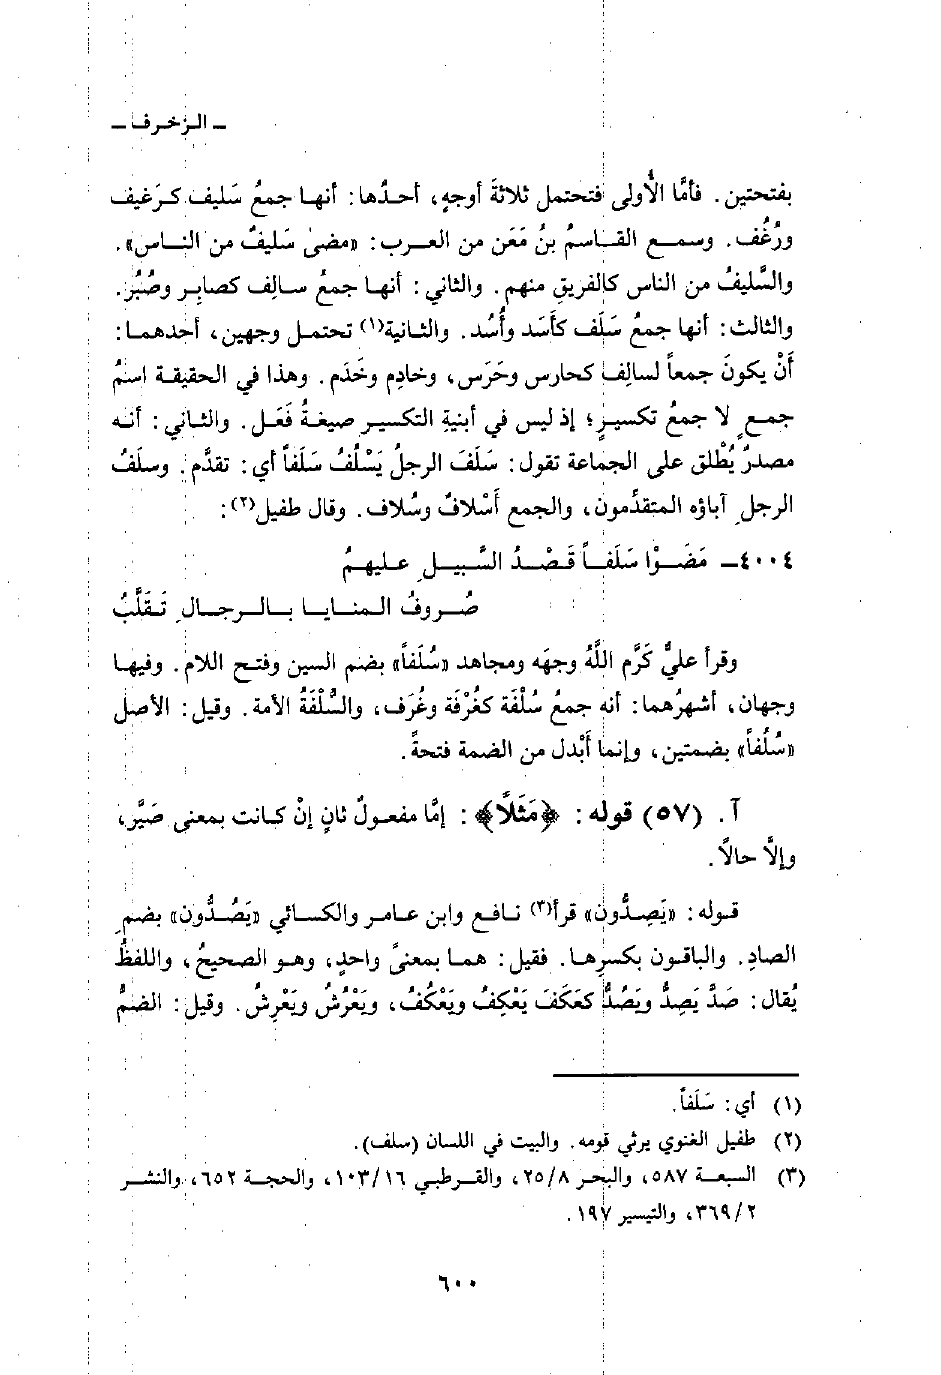 ـ الزخرف ـ
بفتحتين. فأمَّا الأُولى فتحتمل ثلاثةَ أوجهٍ، أحدُها: أنها جمعُ سَليف كرَغيف
ورُغُف. وسمع القاسمُ بنُ مَعَن من العرب: «مضىٰ سَليفٌ من الناس».
والسَّليفُ من الناس كالفريقِ منهم. والثاني: أنها جمعُ سالِف كصابِر وصُبُر.
والثالث: أنها جمعُ سَلَف كأَسَد وأُسُد. والثانية(١) تحتمل وجهين، أحدهما:
أَنْ يكونَ جمعاً لسالِف كحارِس وحَرَس، وخادِم وخَدَم. وهذا في الحقيقة اسمُ
جمعٍ لا جمعُ تكسيرٍ؛ إذ ليس في أبنيةِ التكسير صيغةُ فَعَل. والثاني: أنه
مصدرٌ يُطْلق على الجماعة تقول: سَلَفَ الرجلُ يَسْلُفُ سَلَفاً أي: تقدَّم. وسلَفُ
الرجلِ آباؤه المتقدِّمون، والجمع أَسْلافٌ وسُلاف. وقال طفيل(٢):
٤٠٠٤ـ مَضَوْا سَلَفاً قَصْدُ السَّبيلِ عليهمُ
صُروفُ المنايا بالرجالِ تَقَلَّبُ
وقرأ عليٌّ كَرَّم اللَّهُ وجهَه ومجاهد «سُلَفاً» بضم السين وفتح اللام. وفيها
وجهان، أشهرُهما: أنه جمعُ سُلْفَة كغُرْفَة وغُرَف، والسُّلْفَةُ الأمة. وقيل: الأصل
«سُلُفاً» بضمتين، وإنما أَبْدل من الضمة فتحةً.
آ. (٥٧) قوله: ﴿مَثَلًا﴾: إمَّا مفعولٌ ثانٍ إنْ كانت بمعنى صَيَّر،
وإلاَّ حالاً.
قوله: «يَصِدُّون» قرأ(٣) نافع وابن عامر والكسائي «يَصُدُّون» بضمِ
الصادِ. والباقون بكسرِها. فقيل: هما بمعنىً واحدٍ، وهو الصحيحُ، واللفظُ
يُقال: صَدَّ يَصِدُّ ويَصُدُّ كعَكَفَ يَعْكِفُ ويَعْكُفُ، ويَعْرُشُ ويَعْرِشُ. وقيل: الضمُّ
(١) أي: سَلَفاً.
(٢) طفيل الغنوي يرثي قومه. والبيت في اللسان (سلف).
(٣) السبعة ٥٨٧، والبحر ٢٥/٨، والقرطبي ١٠٣/١٦، والحجة ٦٥٢، والنشر
٣٦٩/٢، والتيسير ١٩٧.
٦٠٠